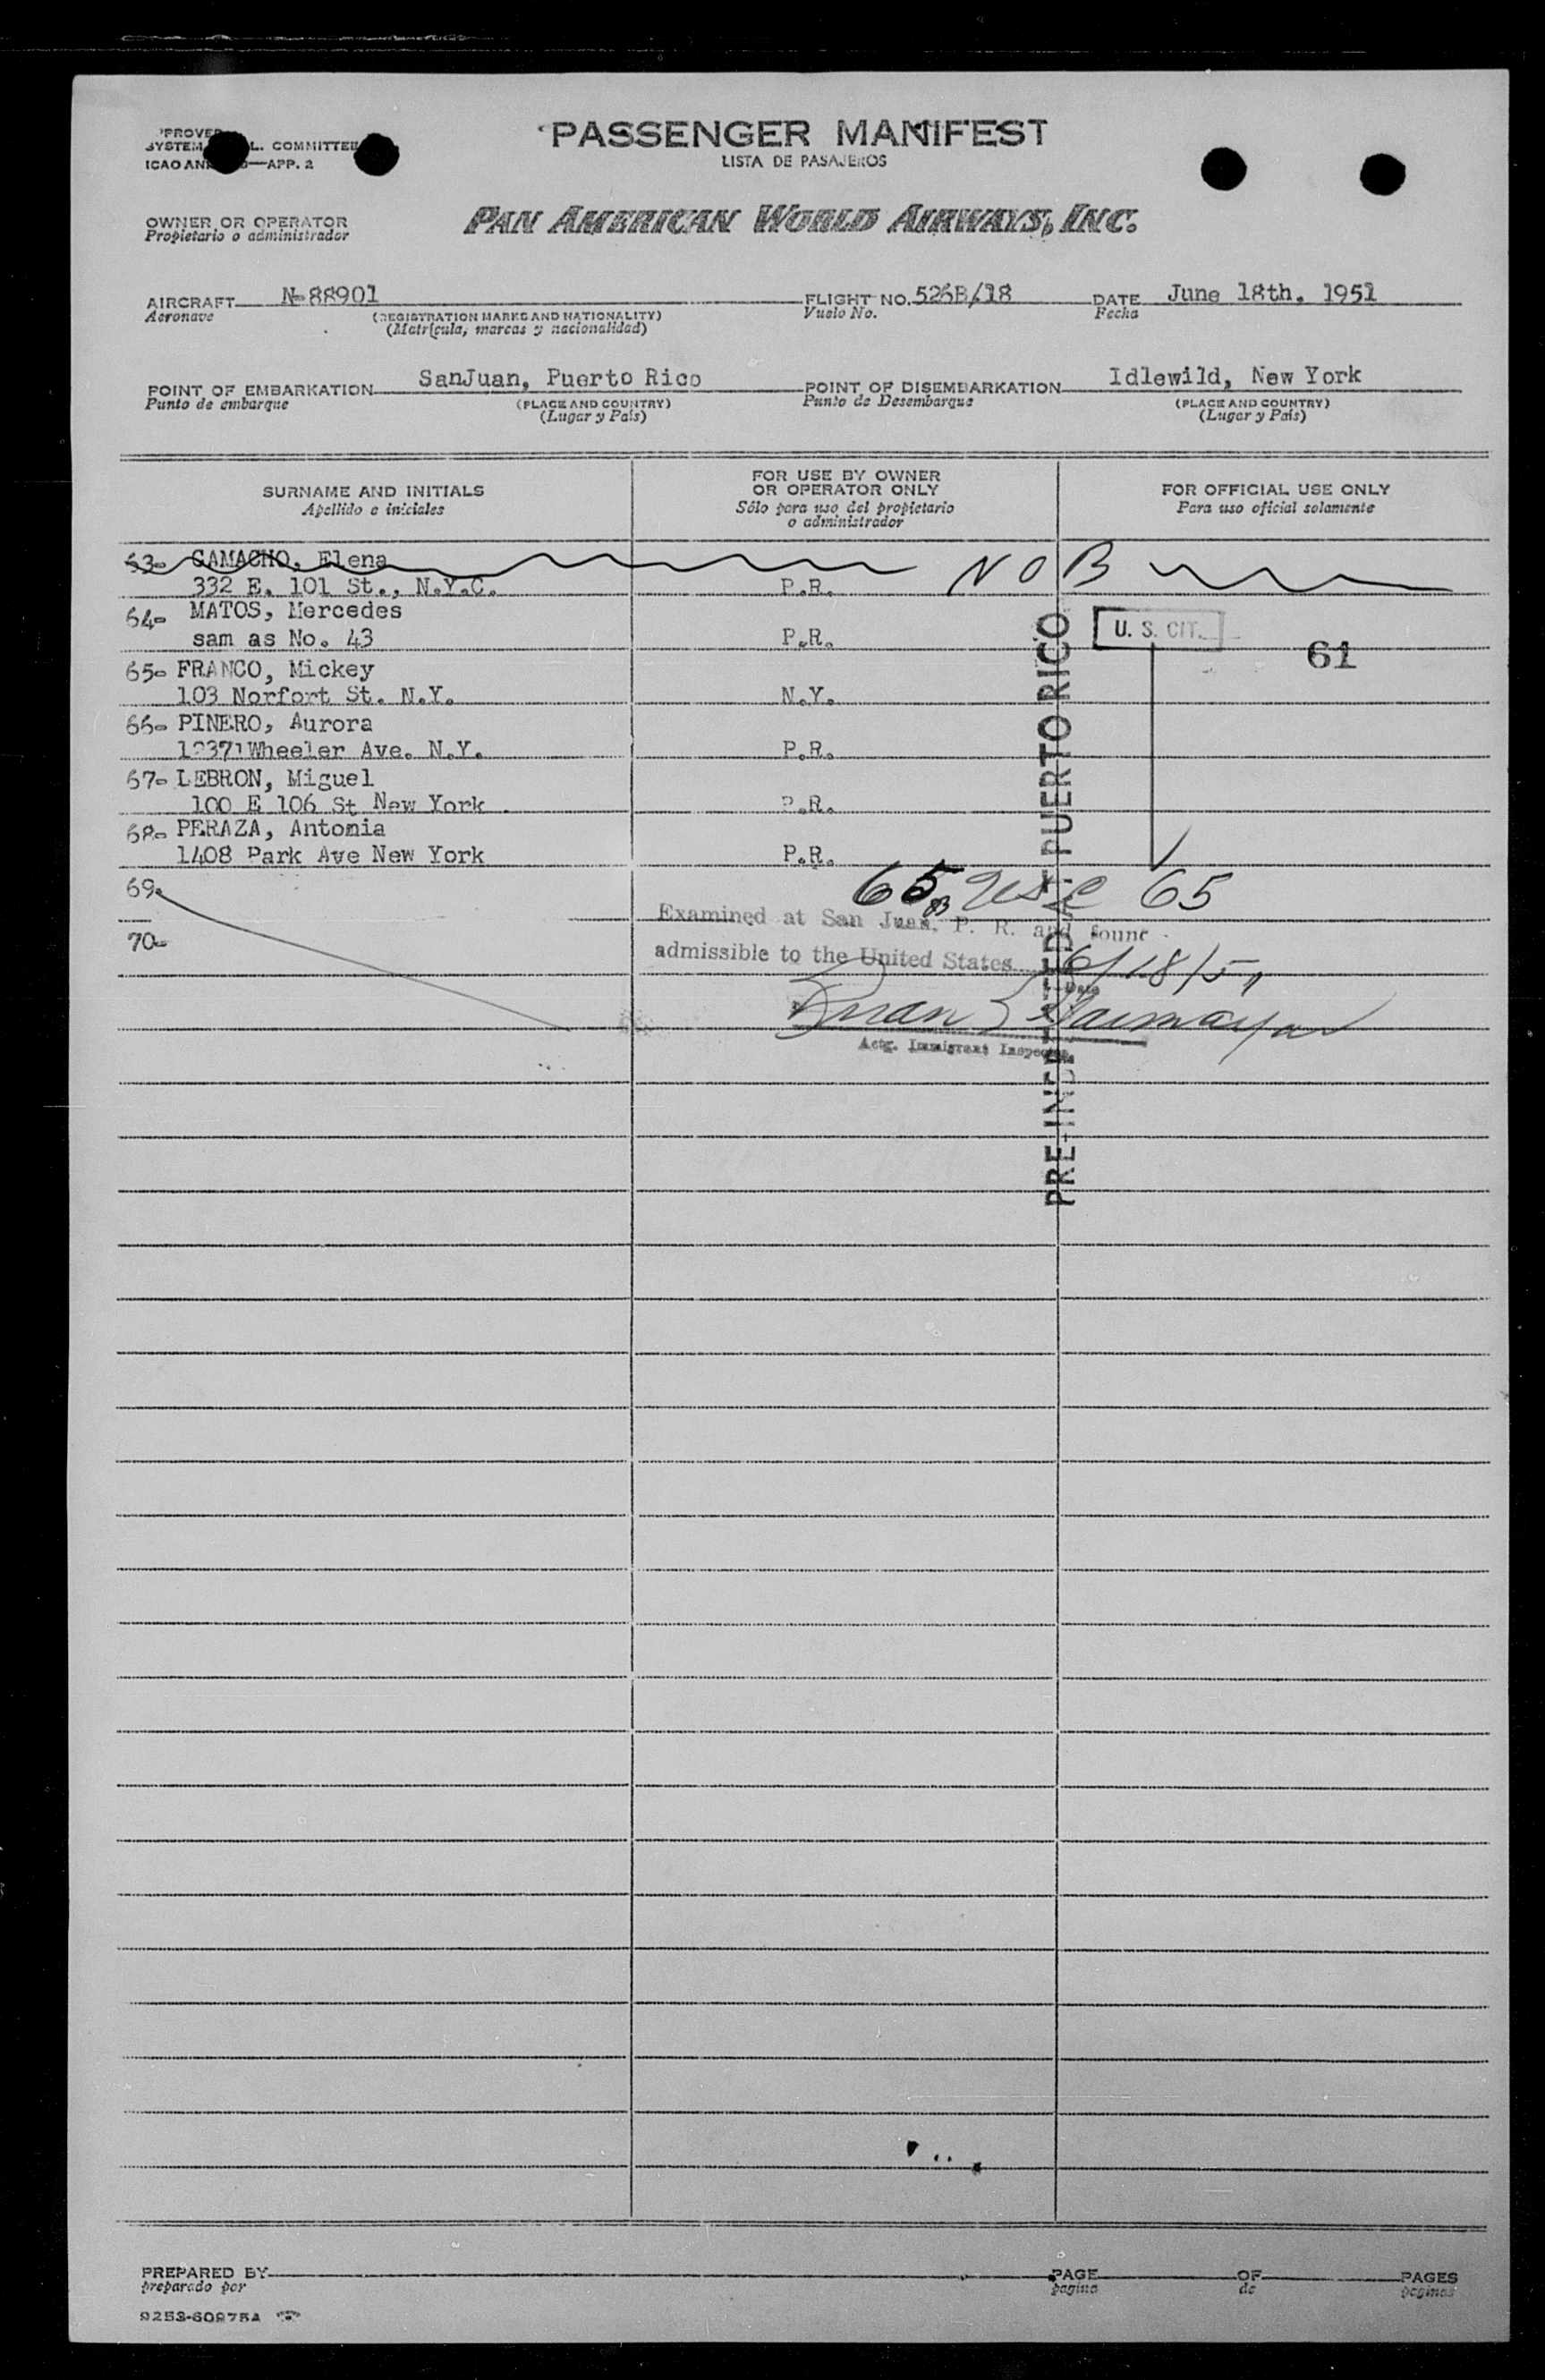 PASSENGER MANIFEST
LISTA DE PASAJEROS
SYSTEM L. COMMITTEE
ICAO APP. 2
OWNER OR OPERATOR
Propietario o administrador
PAN AMERICAN WORLD AIRWAYS, INC.
AIRCRAFT N-88901 FLIGHT NO. 526B/18 DATE June 18th. 1951
Aeronave (REGISTRATION MARKS AND NATIONALITY) Vuelo No. Fecha
(Matrícula, marcas y nacionalidad)
POINT OF EMBARKATION SanJuan, Puerto Rico POINT OF DISEMBARKATION Idlewild, New York
Punto de embarque (PLACE AND COUNTRY) Punto de Desembarque (PLACE AND COUNTRY)
(Lugar y País) (Lugar y País)
SURNAME AND INITIALS
Apellido e iniciales
FOR USE BY OWNER
OR OPERATOR ONLY
Sólo para uso del propietario
o administrador
FOR OFFICIAL USE ONLY
Para uso oficial solamente
63- CAMACHO, Elena NOB
332 E. 101 St., N.Y.C. P.R.
64- MATOS, Mercedes U. S. CIT.
sam as No. 43 P.R. 61
65- FRANCO, Mickey
103 Norfort St. N.Y. N.Y.
66- PINERO, Aurora
Wheeler Ave. N.Y. P.R.
67- LEBRON, Miguel
100 E 106 St New York P.R.
68- PERAZA, Antonia
1408 Park Ave New York P.R.
69- 65 65
Examined at San Juan, P. R. and found
70- admissible to the United States 6/18/51
Date
Actg. Immigrant Inspector
PRE-INSPECTED AT PUERTO RICO
PREPARED BY PAGE OF PAGES
preparado por pagina de paginas
9253-60975A